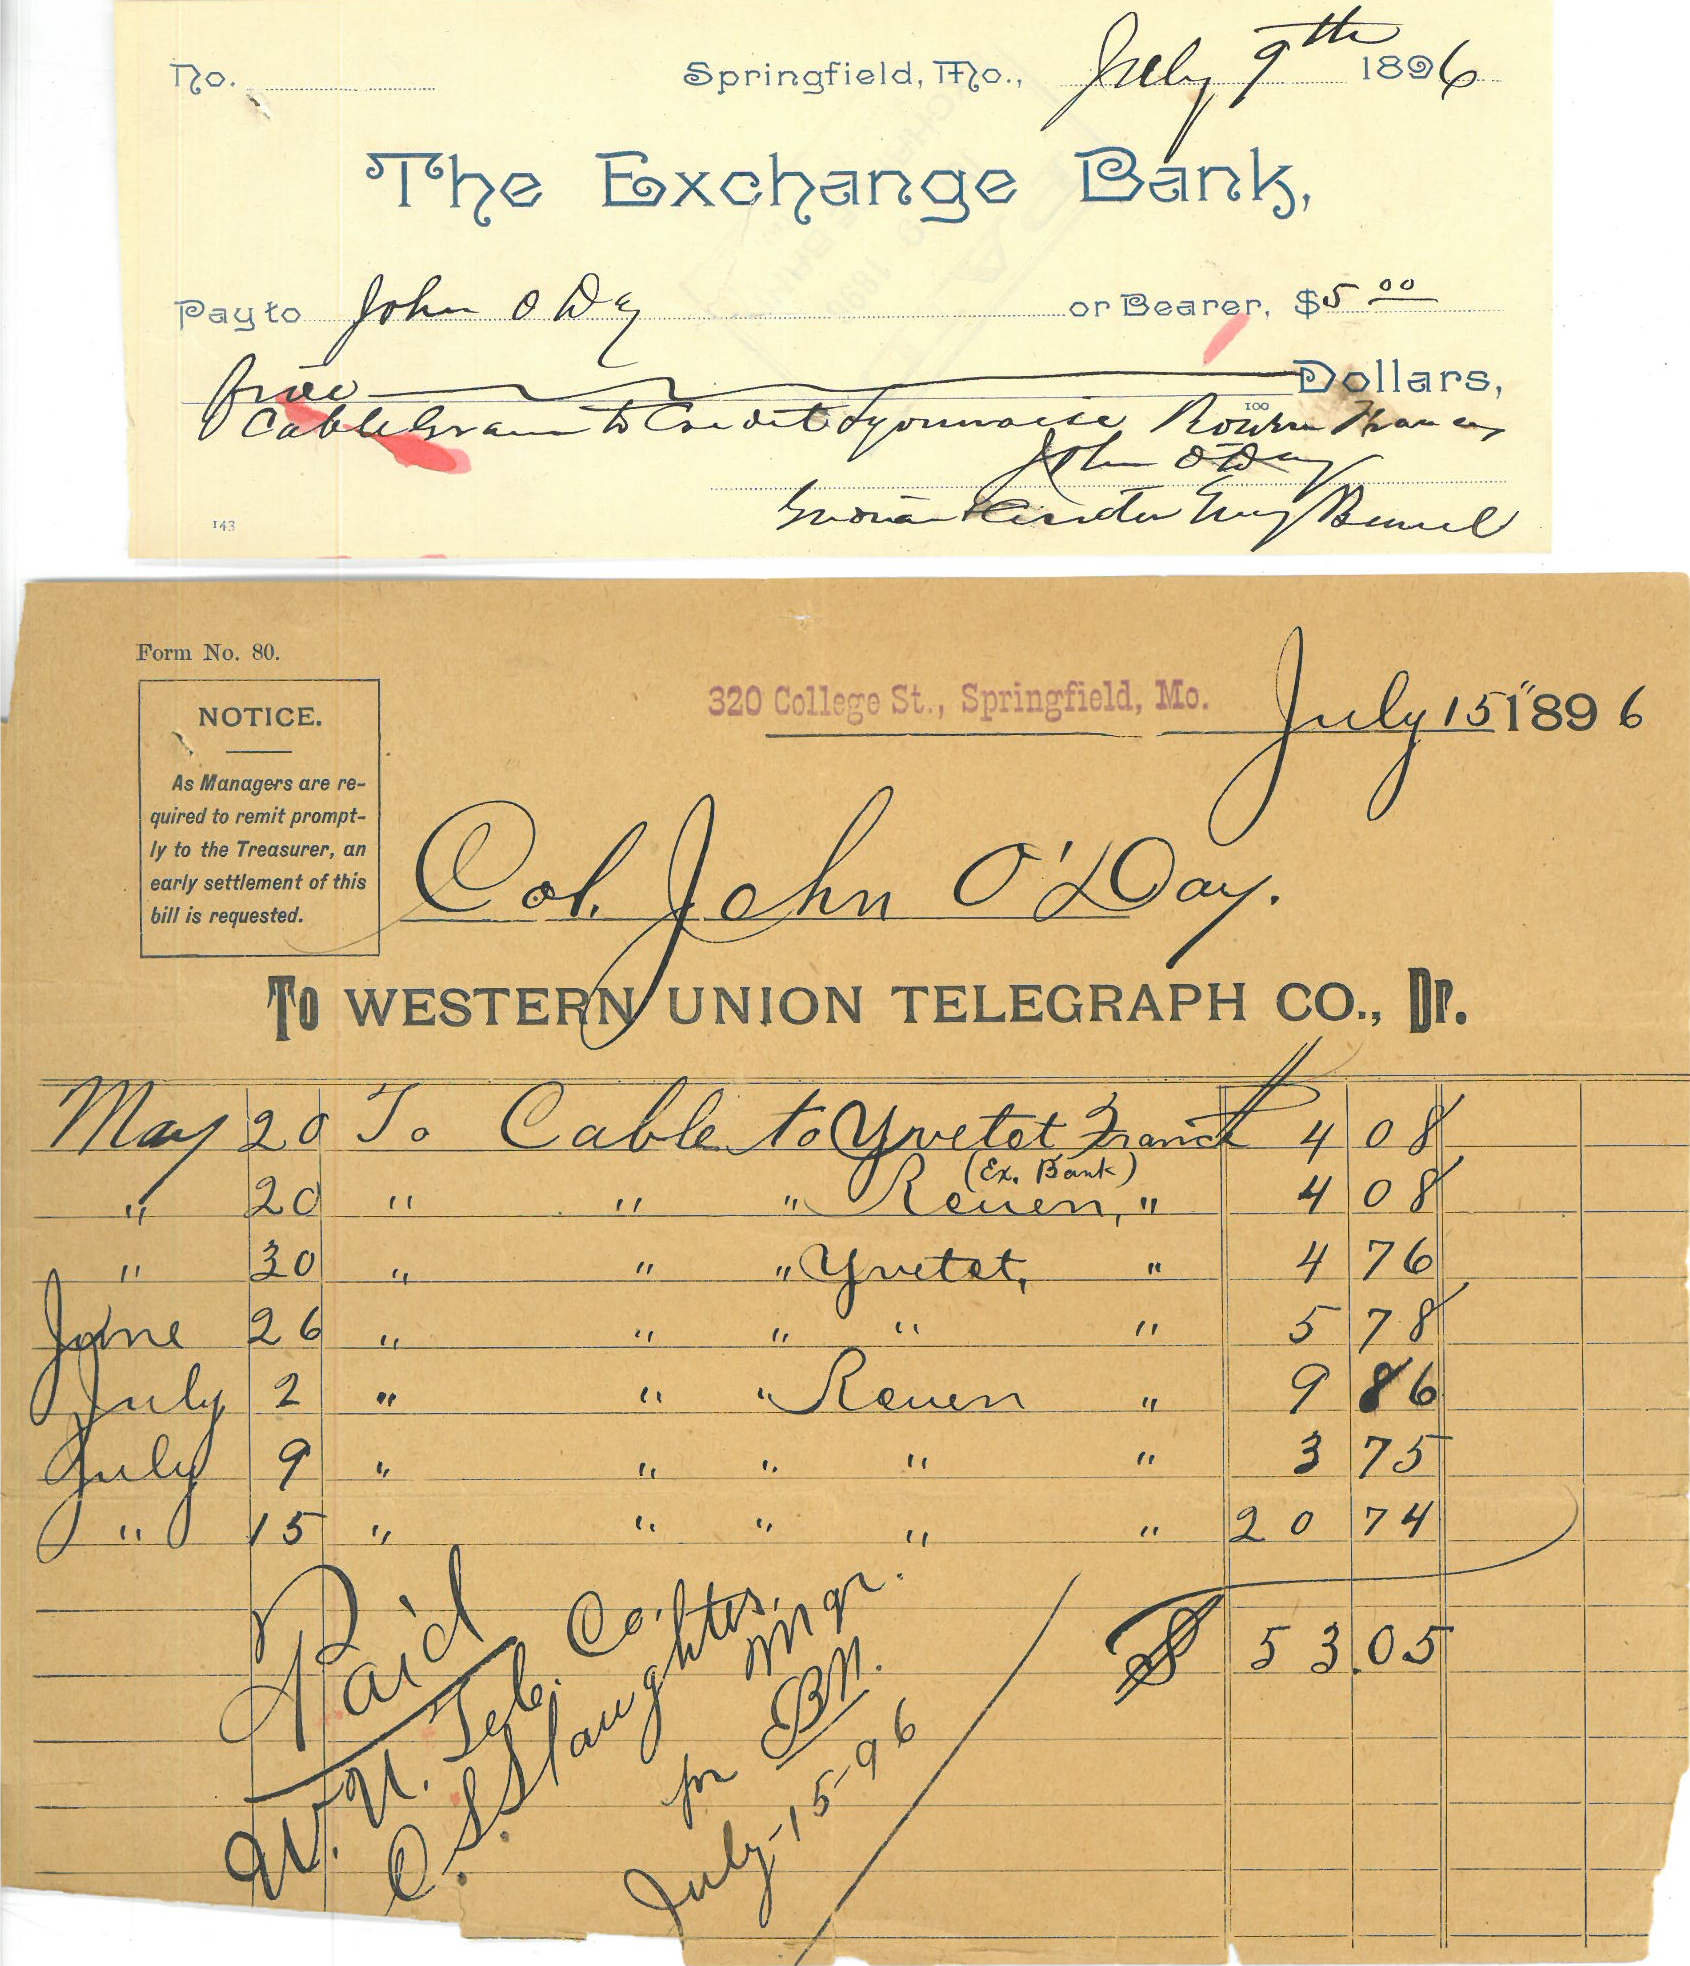 No. Springfield, Mo., July 9th 1896
The Exchange Bank,
Pay to John O Day or Bearer, $5 00
five Dollars,
100
Cable Gram to Credit Lyonnaise Rouen France
John O'Day
143
Form No. 80.
NOTICE.
As Managers are re-
quired to remit prompt-
ly to the Treasurer, an
early settlement of this
bill is requested.
320 College St., Springfield, Mo. July 15" 1896
Col. John O'Day.
To WESTERN UNION TELEGRAPH CO., Dr.
May 20 To Cable to Yvetot France 4 08
(Ex. Bank)
" 20 " " " Rouen, " 4 08
" 30 " " " Yvetot, " 4 76
June 26 " " " " " 5 78
July 2 " " " Rouen " 9 86
July 9 " " " " " 3 75
" 15 " " " " " 20 74
$ 53.05
Paid
W. U. Tel. Co.
C. S. Slaughter, Mgr.
for BN.
July-15-96